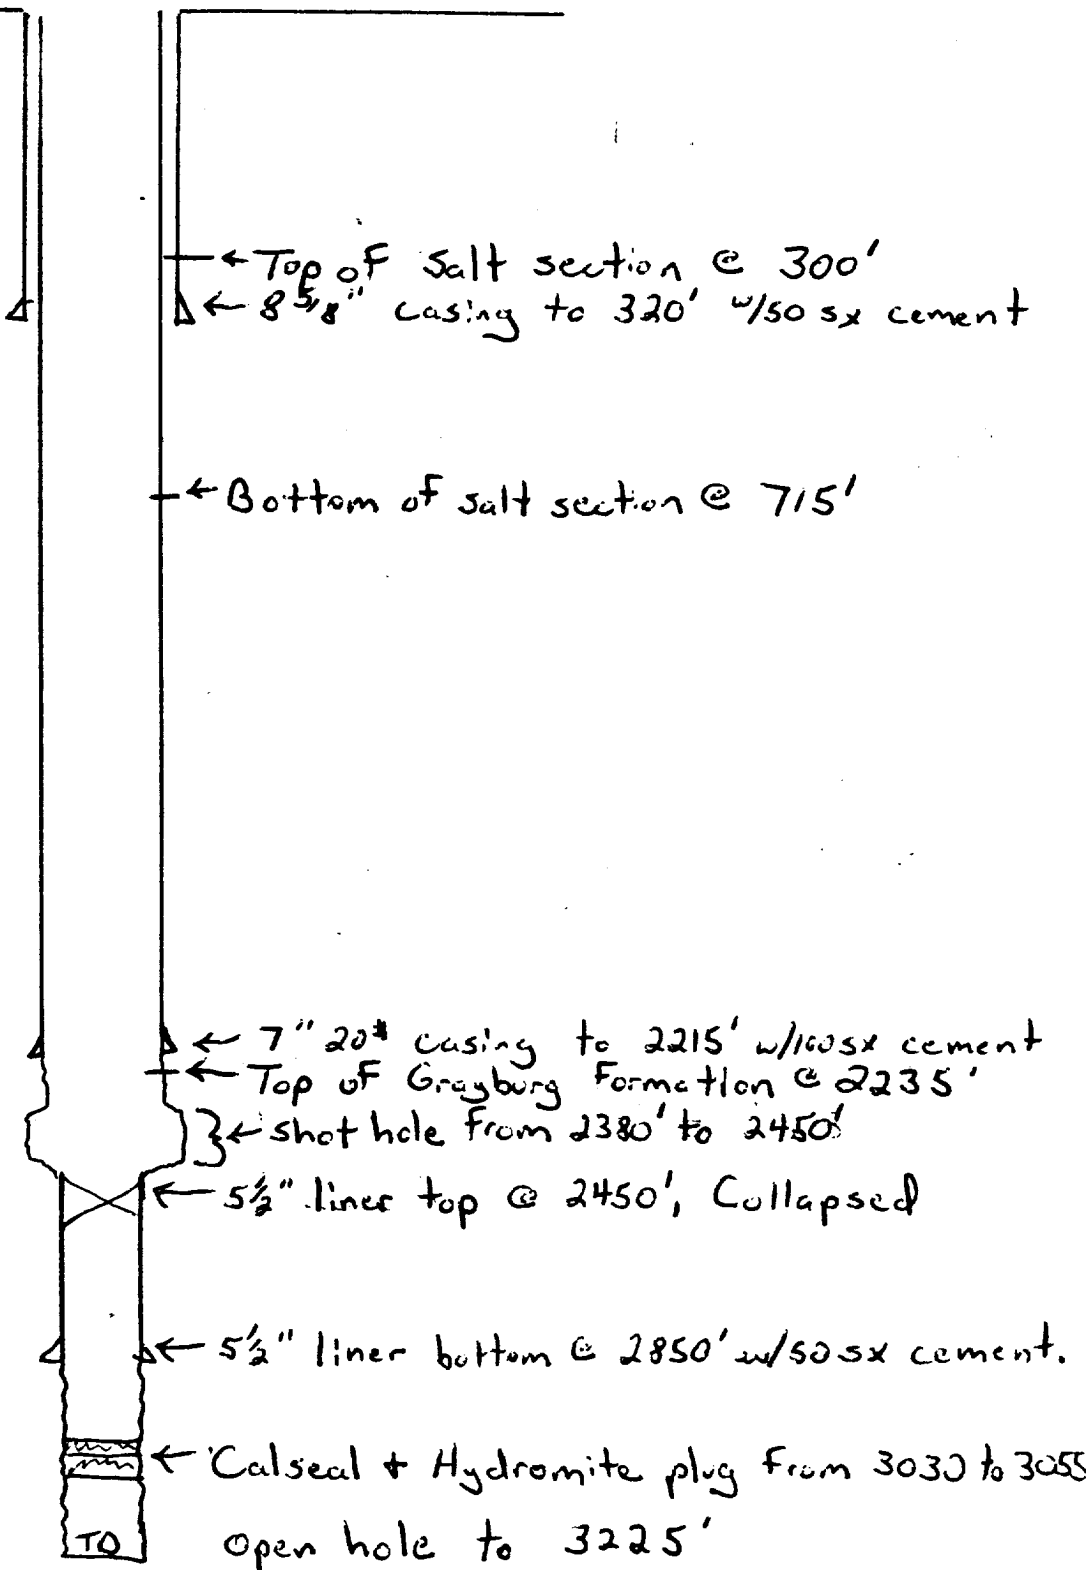 ← Top of Salt section @ 300'
← 8 5/8" casing to 320' w/50 sx cement
← Bottom of salt section @ 715'
← 7" 20# casing to 2215' w/100sx cement
← Top of Grayburg Formation @ 2235'
} ← shot hole from 2380' to 2450'
← 5½" liner top @ 2450', Collapsed
← 5½" liner bottom @ 2850' w/50 sx cement.
← Calseal + Hydromite plug from 3030 to 3055
TD open hole to 3225'